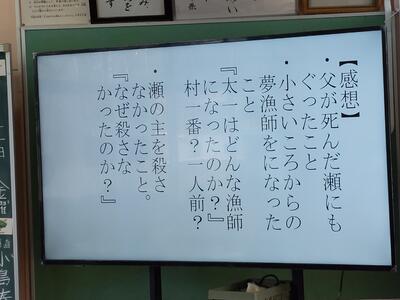 【感想】
・父が死んだ瀬にも
ぐったこと
・小さいころからの
夢漁師をになった
こと
『太一はどんな漁師
になったのか？』
村一番？一人前？
・瀬の主を殺さ
なかったこと。
『なぜ殺さな
かったのか？』